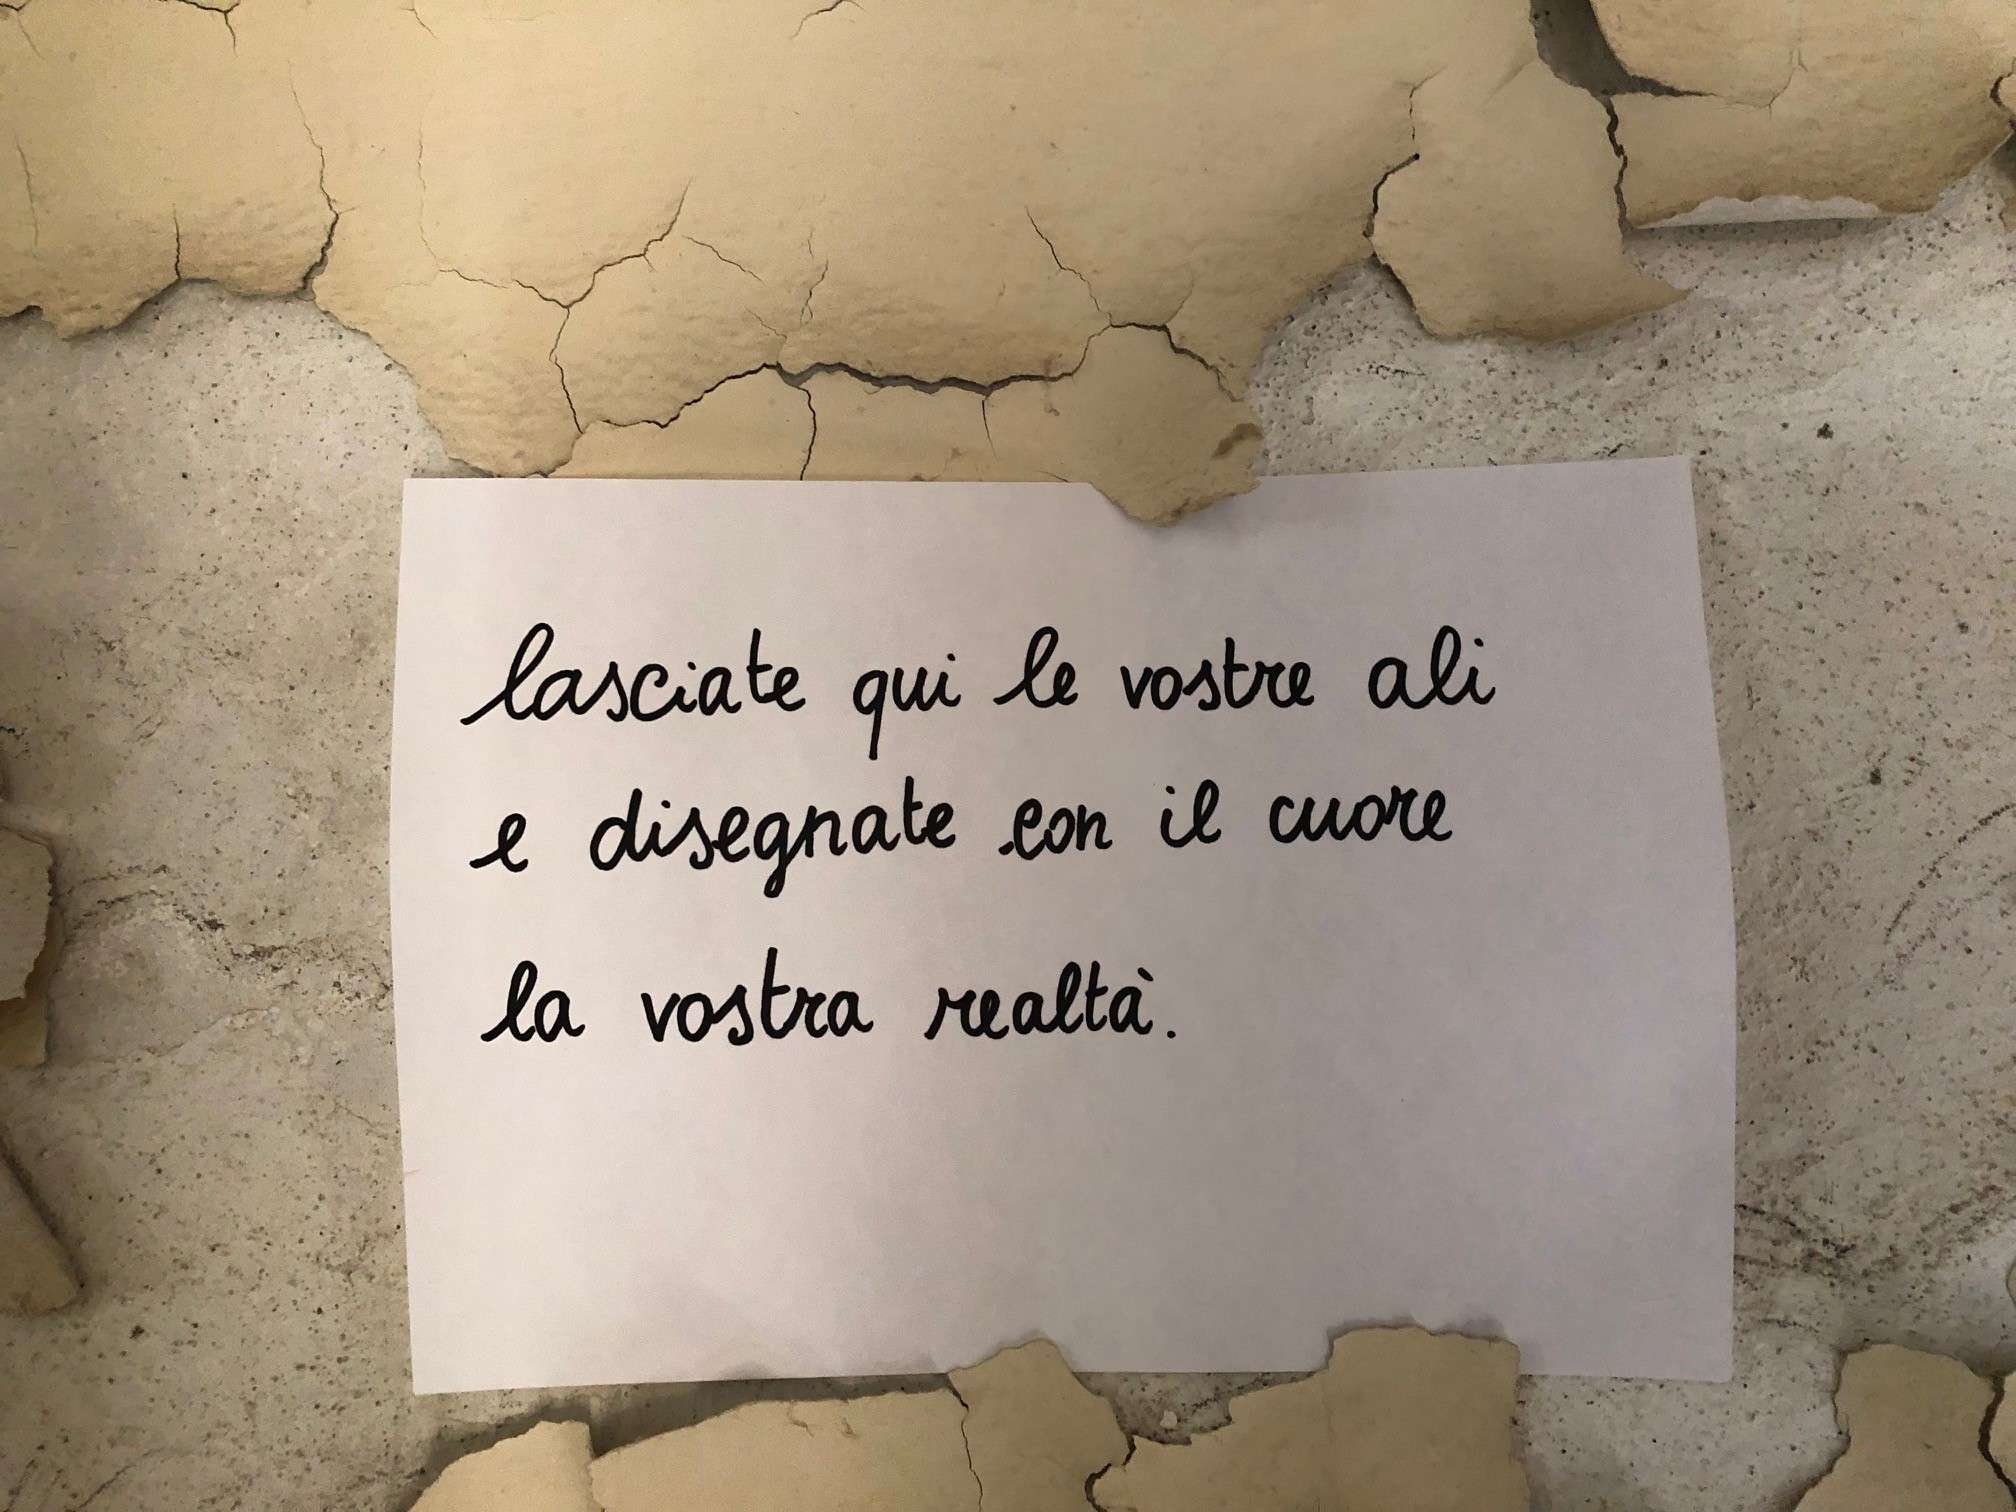 lasciate qui le vostre ali
e disegnate con il cuore
la vostra realtà.